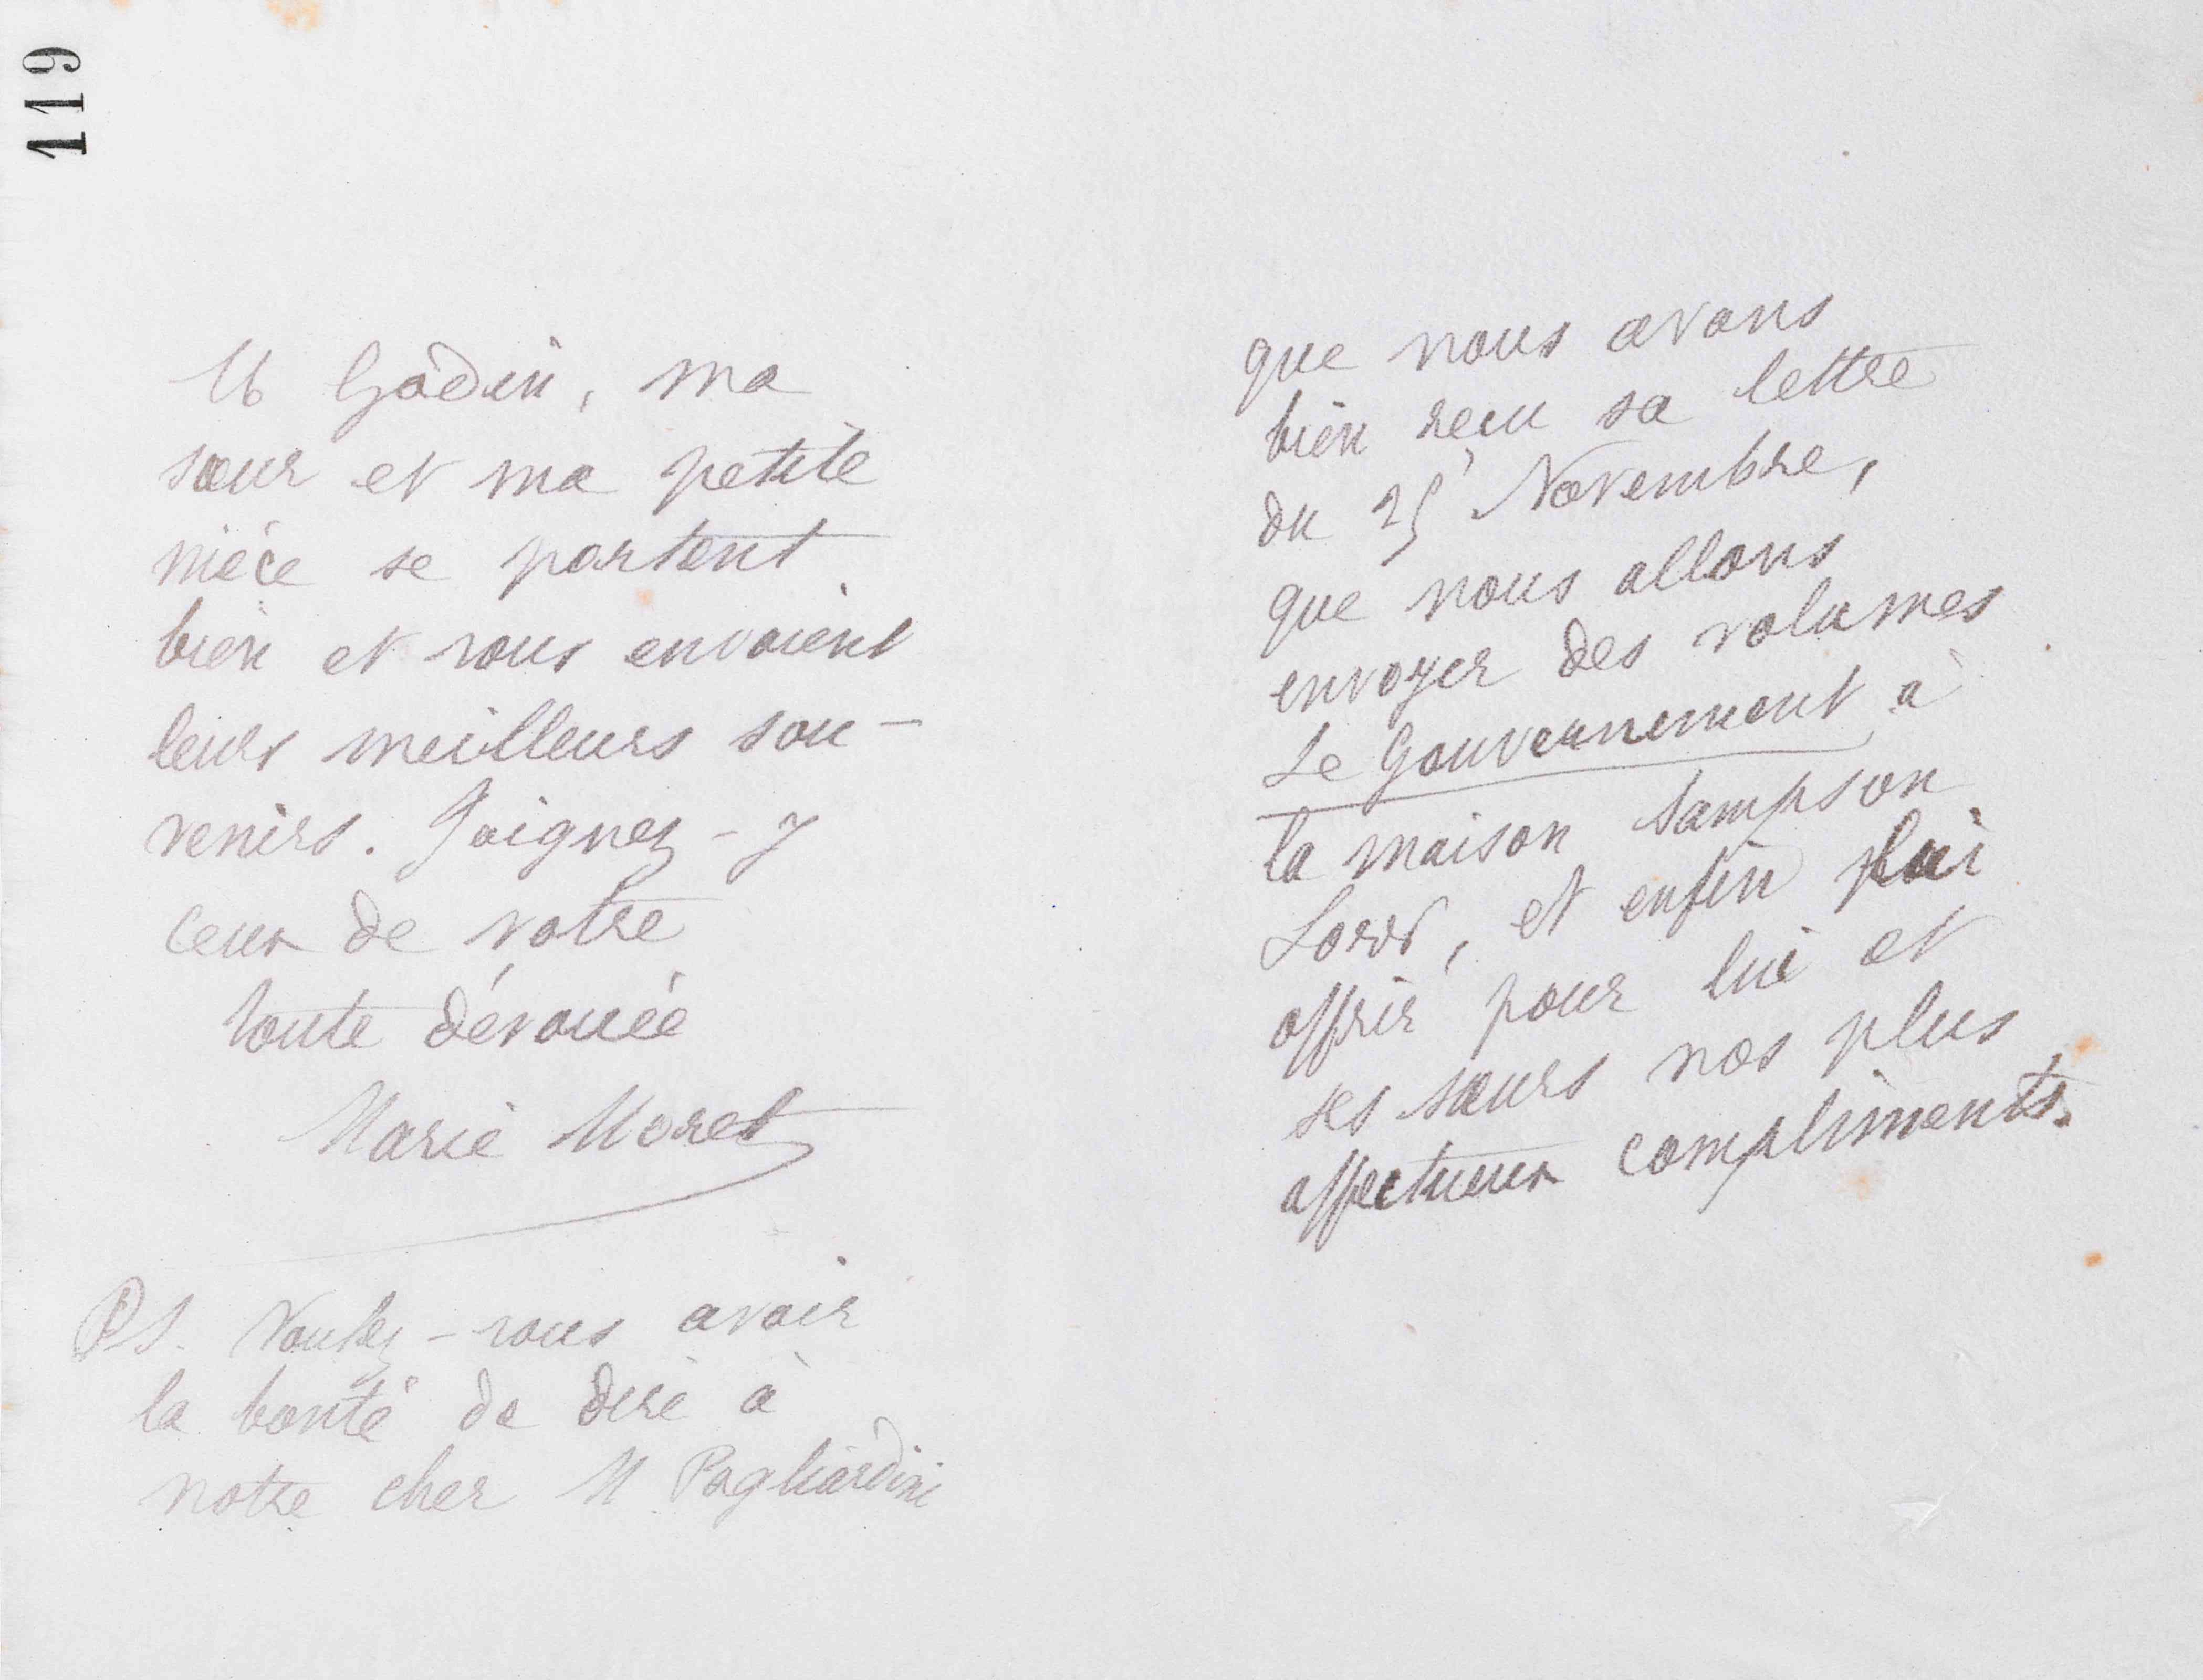 119
M Godin, ma
sœur et ma petite
nièce se portent
bien et vous envoient
leurs meilleurs sou-
venirs. Joignez-y
ceux de votre
toute dévouée
Marie Moret
PS. Voulez-vous avoir
la bonté de dire à
notre cher M Pagliardini
que nous avons
bien reçu sa lettre
du 25 Novembre,
que nous allons
envoyer des volumes
Le Gouvernement à
la maison Sampson
Low, et enfin lui
offrir pour lui et
ses sœurs nos plus
affectueux compliments.